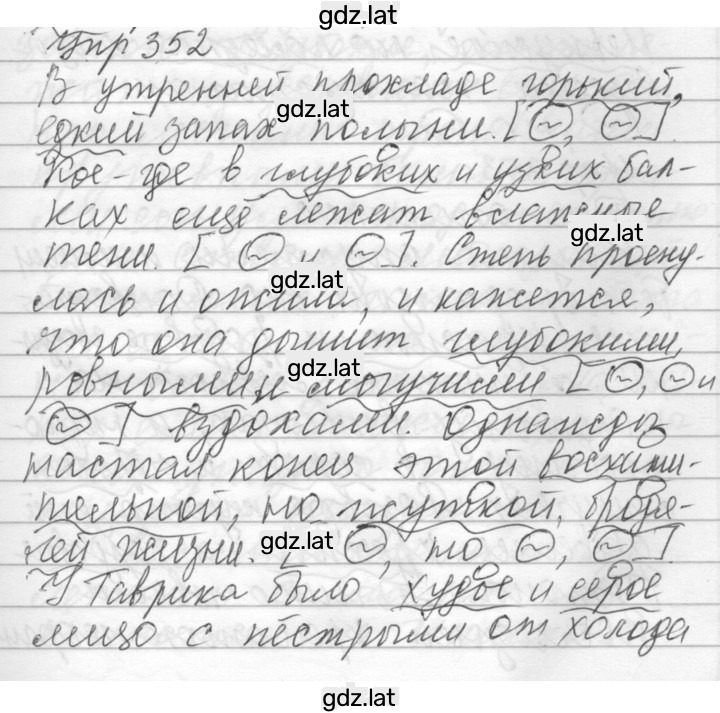 gdz.lat
Упр 352
В утренней прохладе горький,
gdz.lat
едкий запах полыни. [ , ].
Кое-где в глубоких и узких бал-
ках ещё лежат влажные
gdz.lat
тени. [ и ]. Степь просну-
gdz.lat
лась и ожила, и кажется,
что она дышит глубокими,
gdz.lat
ровными и могучими [ , и
] вздохами. Однажды
настал конец этой восхити-
тельной, но жуткой, бродя-
gdz.lat
чей жизни. [ , но , ]
У Гаврика было худое и серое
лицо с пёстрыми от холода
gdz.lat